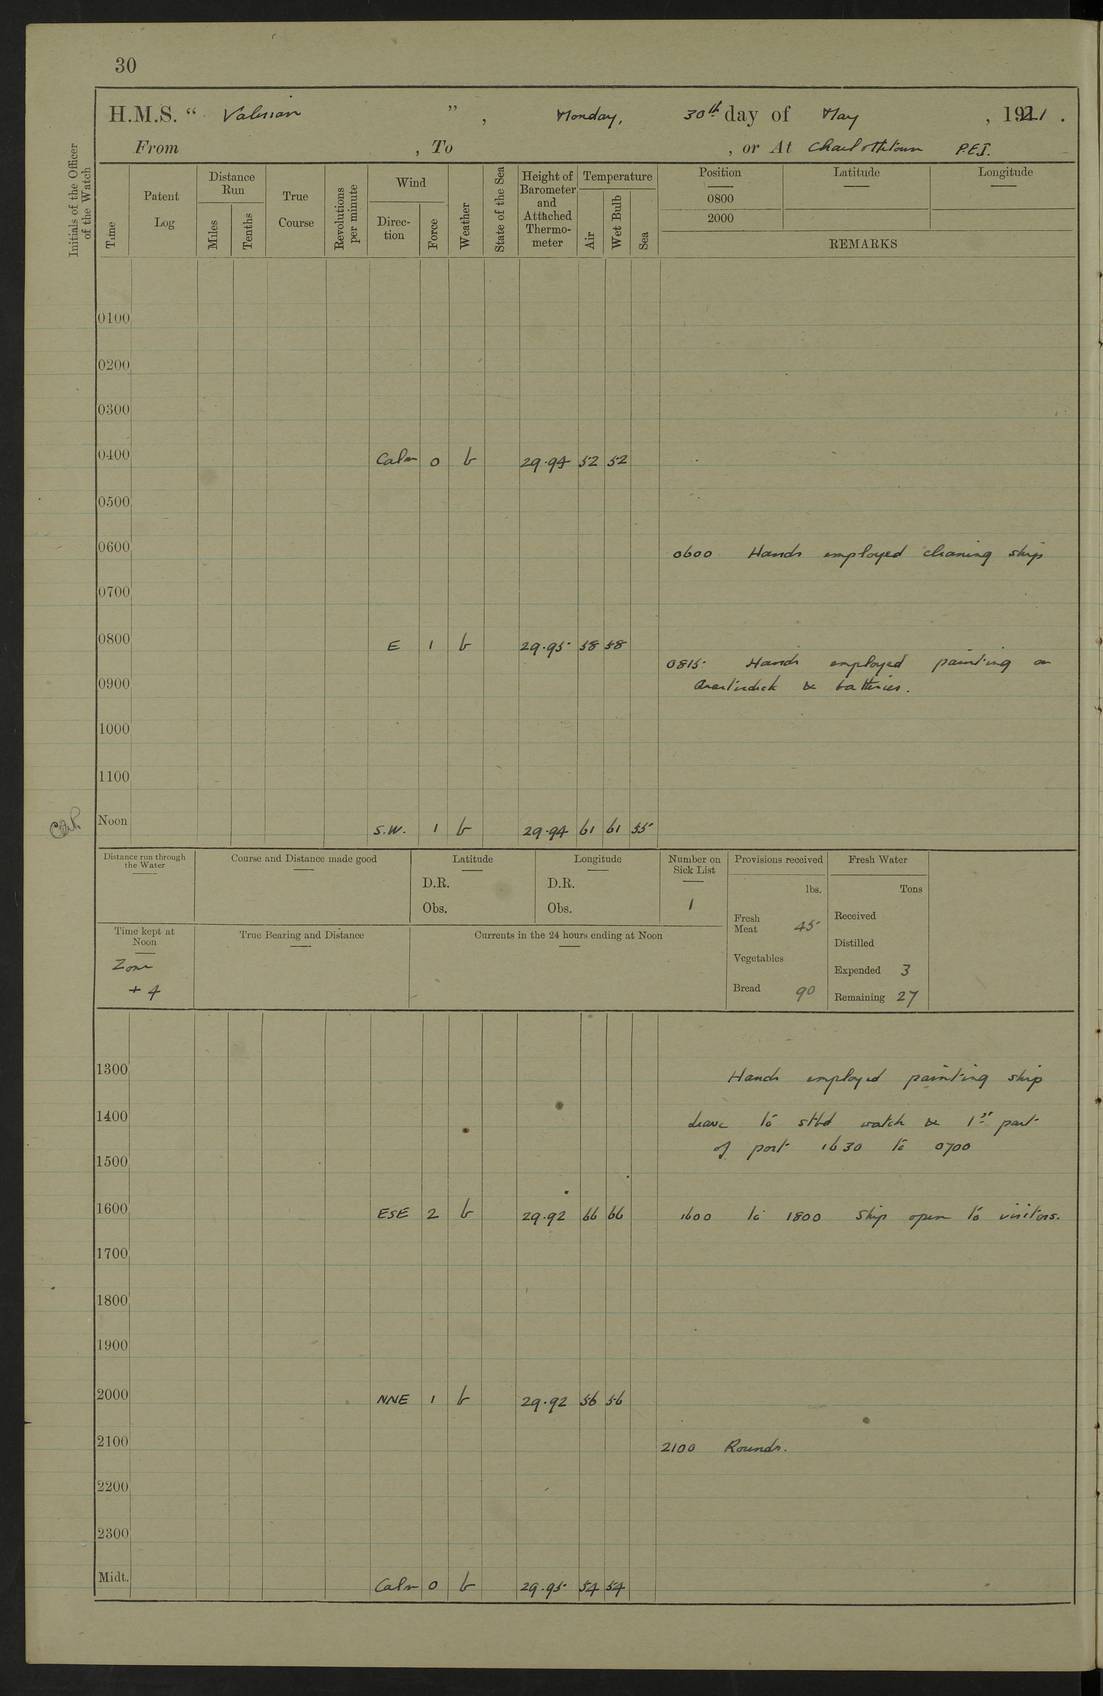 30
H.M.S. " Valerian ", Monday, 30th day of May, 1921.
From , To , or At Charlottetown P.E.I.
Initials of the Officer of the Watch
Time
Patent Log
Distance Run
Miles
Tenths
True Course
Revolutions per minute
Wind
Direc-tion
Force
Weather
State of the Sea
Height of Barometer and Attached Thermo-meter
Temperature
Air
Wet Bulb
Sea
Position Latitude Longitude
0800
2000
REMARKS
0100
0200
0300
0400 Calm 0 b 29.94 52 52
0500
0600 0600 Hands employed cleaning ship
0700
0800 E 1 b 29.95 58 58
0815 Hands employed painting on
& batteries.
0900
1000
1100
Noon S.W. 1 b 29.94 61 61 55
Distance run through the Water
Course and Distance made good
Latitude
D.R.
Obs.
Longitude
D.R.
Obs.
Number on Sick List
1
Provisions received
lbs.
Fresh Meat 45
Vegetables
Bread 90
Fresh Water
Tons
Received
Distilled
Expended 3
Remaining 27
Time kept at Noon
Zone
+ 4
True Bearing and Distance
Currents in the 24 hours ending at Noon
1300 Hands employed painting ship
1400 Leave to stbd watch & 1st part
of port 1630 to 0700
1500
1600 ESE 2 b 29.92 66 66 1600 to 1800 Ship open to visitors.
1700
1800
1900
2000 NNE 1 b 29.92 56 56
2100 2100 Rounds.
2200
2300
Midt. Calm 0 b 29.95 54 54